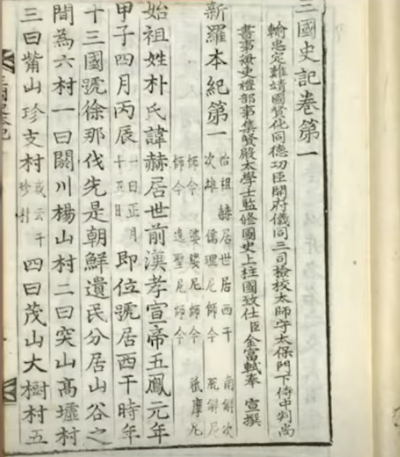 三國史記卷第一
輸忠定難靖國贊化同德功臣開府儀同三司檢校太師守太保門下侍中判尚
書事兼吏禮部事集賢殿太學士監修國史上柱國致仕臣金富軾奉 宣撰
新羅本紀第一
始祖赫居世居西干 南解次
次雄 儒理尼師今 脫解尼
師今 婆娑尼師今 祇摩尼
師今 逸聖尼師今
始祖姓朴氏諱赫居世前漢孝宣帝五鳳元年
甲子四月丙辰一曰正月十五日即位號居西干時年
十三國號徐那伐先是朝鮮遺民分居山谷之
間為六村一曰閼川楊山村二曰突山高墟村
三曰觜山珍支村或云干珍村四曰茂山大樹村五